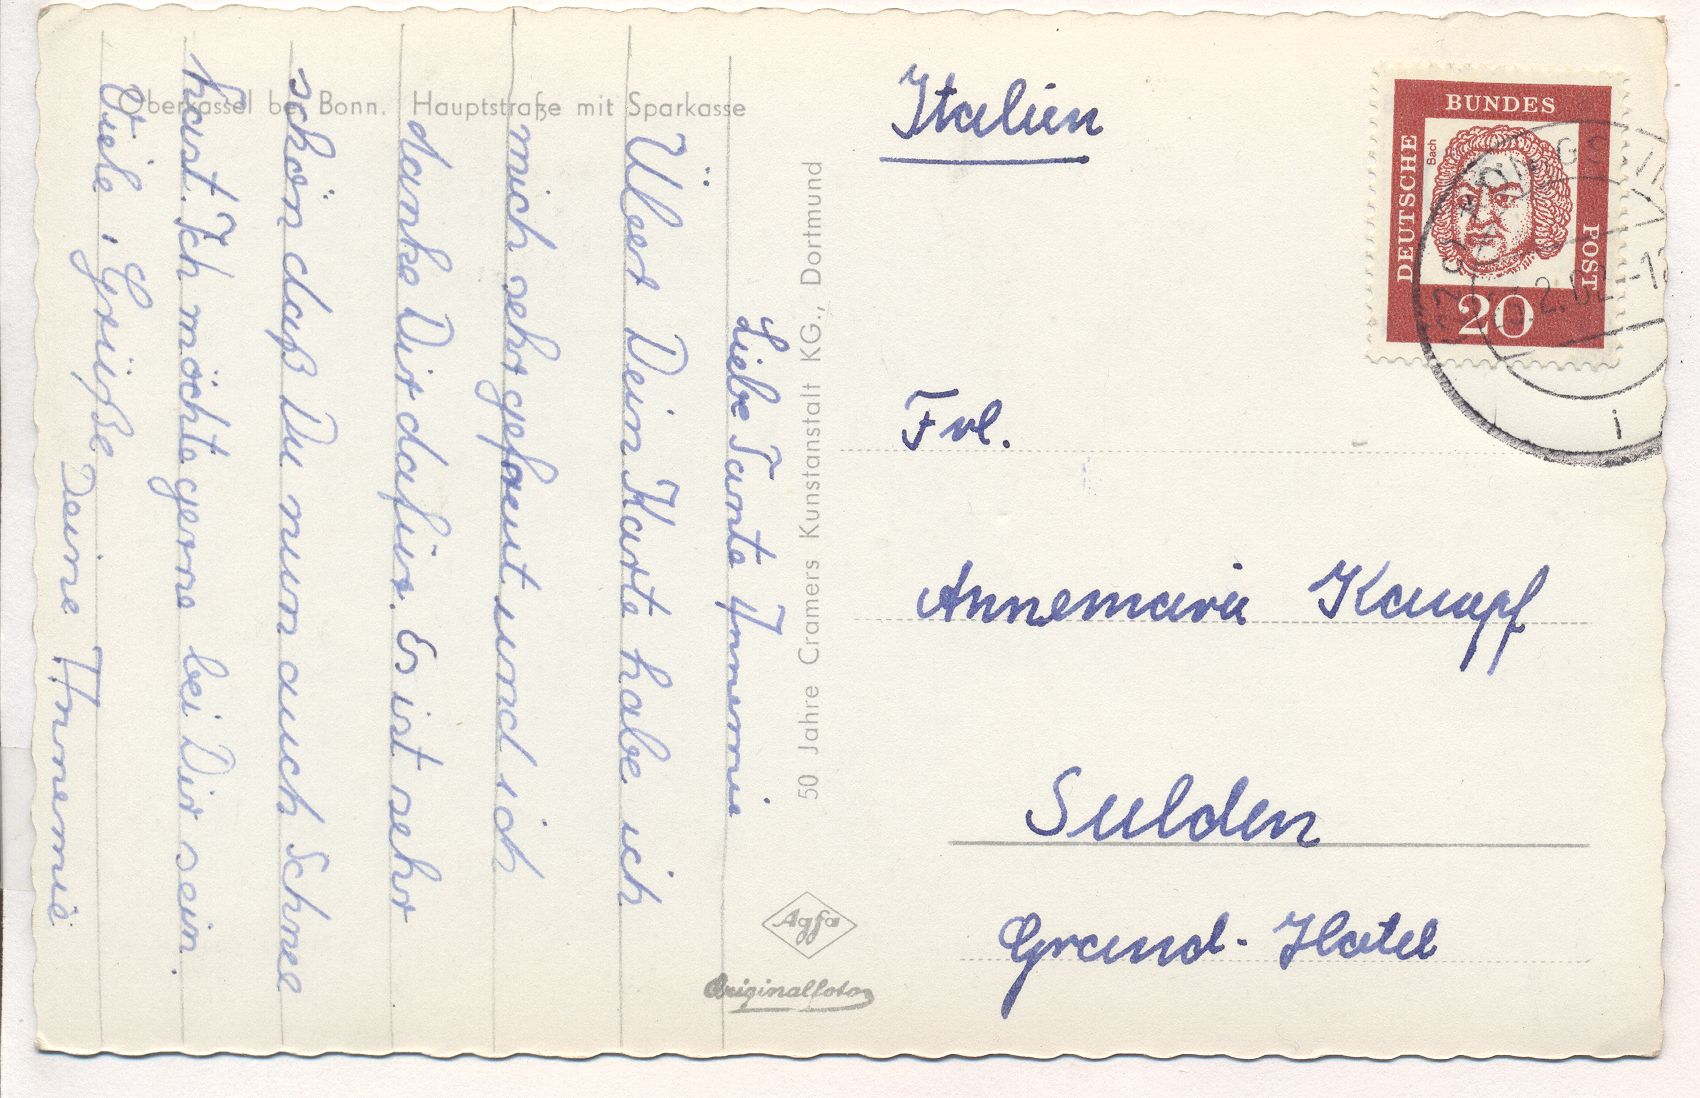 Oberkassel bei Bonn. Hauptstraße mit Sparkasse
Liebe Tante Annemie
Über Dein Karte habe ich
mich sehr gefreut und ich
danke Dir dafür. Es ist sehr
schön daß Du nun auch Schnee
hast. Ich möchte gerne bei Dir sein.
Viele, Grüße
Deine Annemie
50 Jahre Cramers Kunstanstalt KG., Dortmund
Agfa
Originalfoto
Italien
DEUTSCHE
BUNDES
POST
Bach
20
Frl.
Annemarie Kampf
Sulden
Grand-Hotel